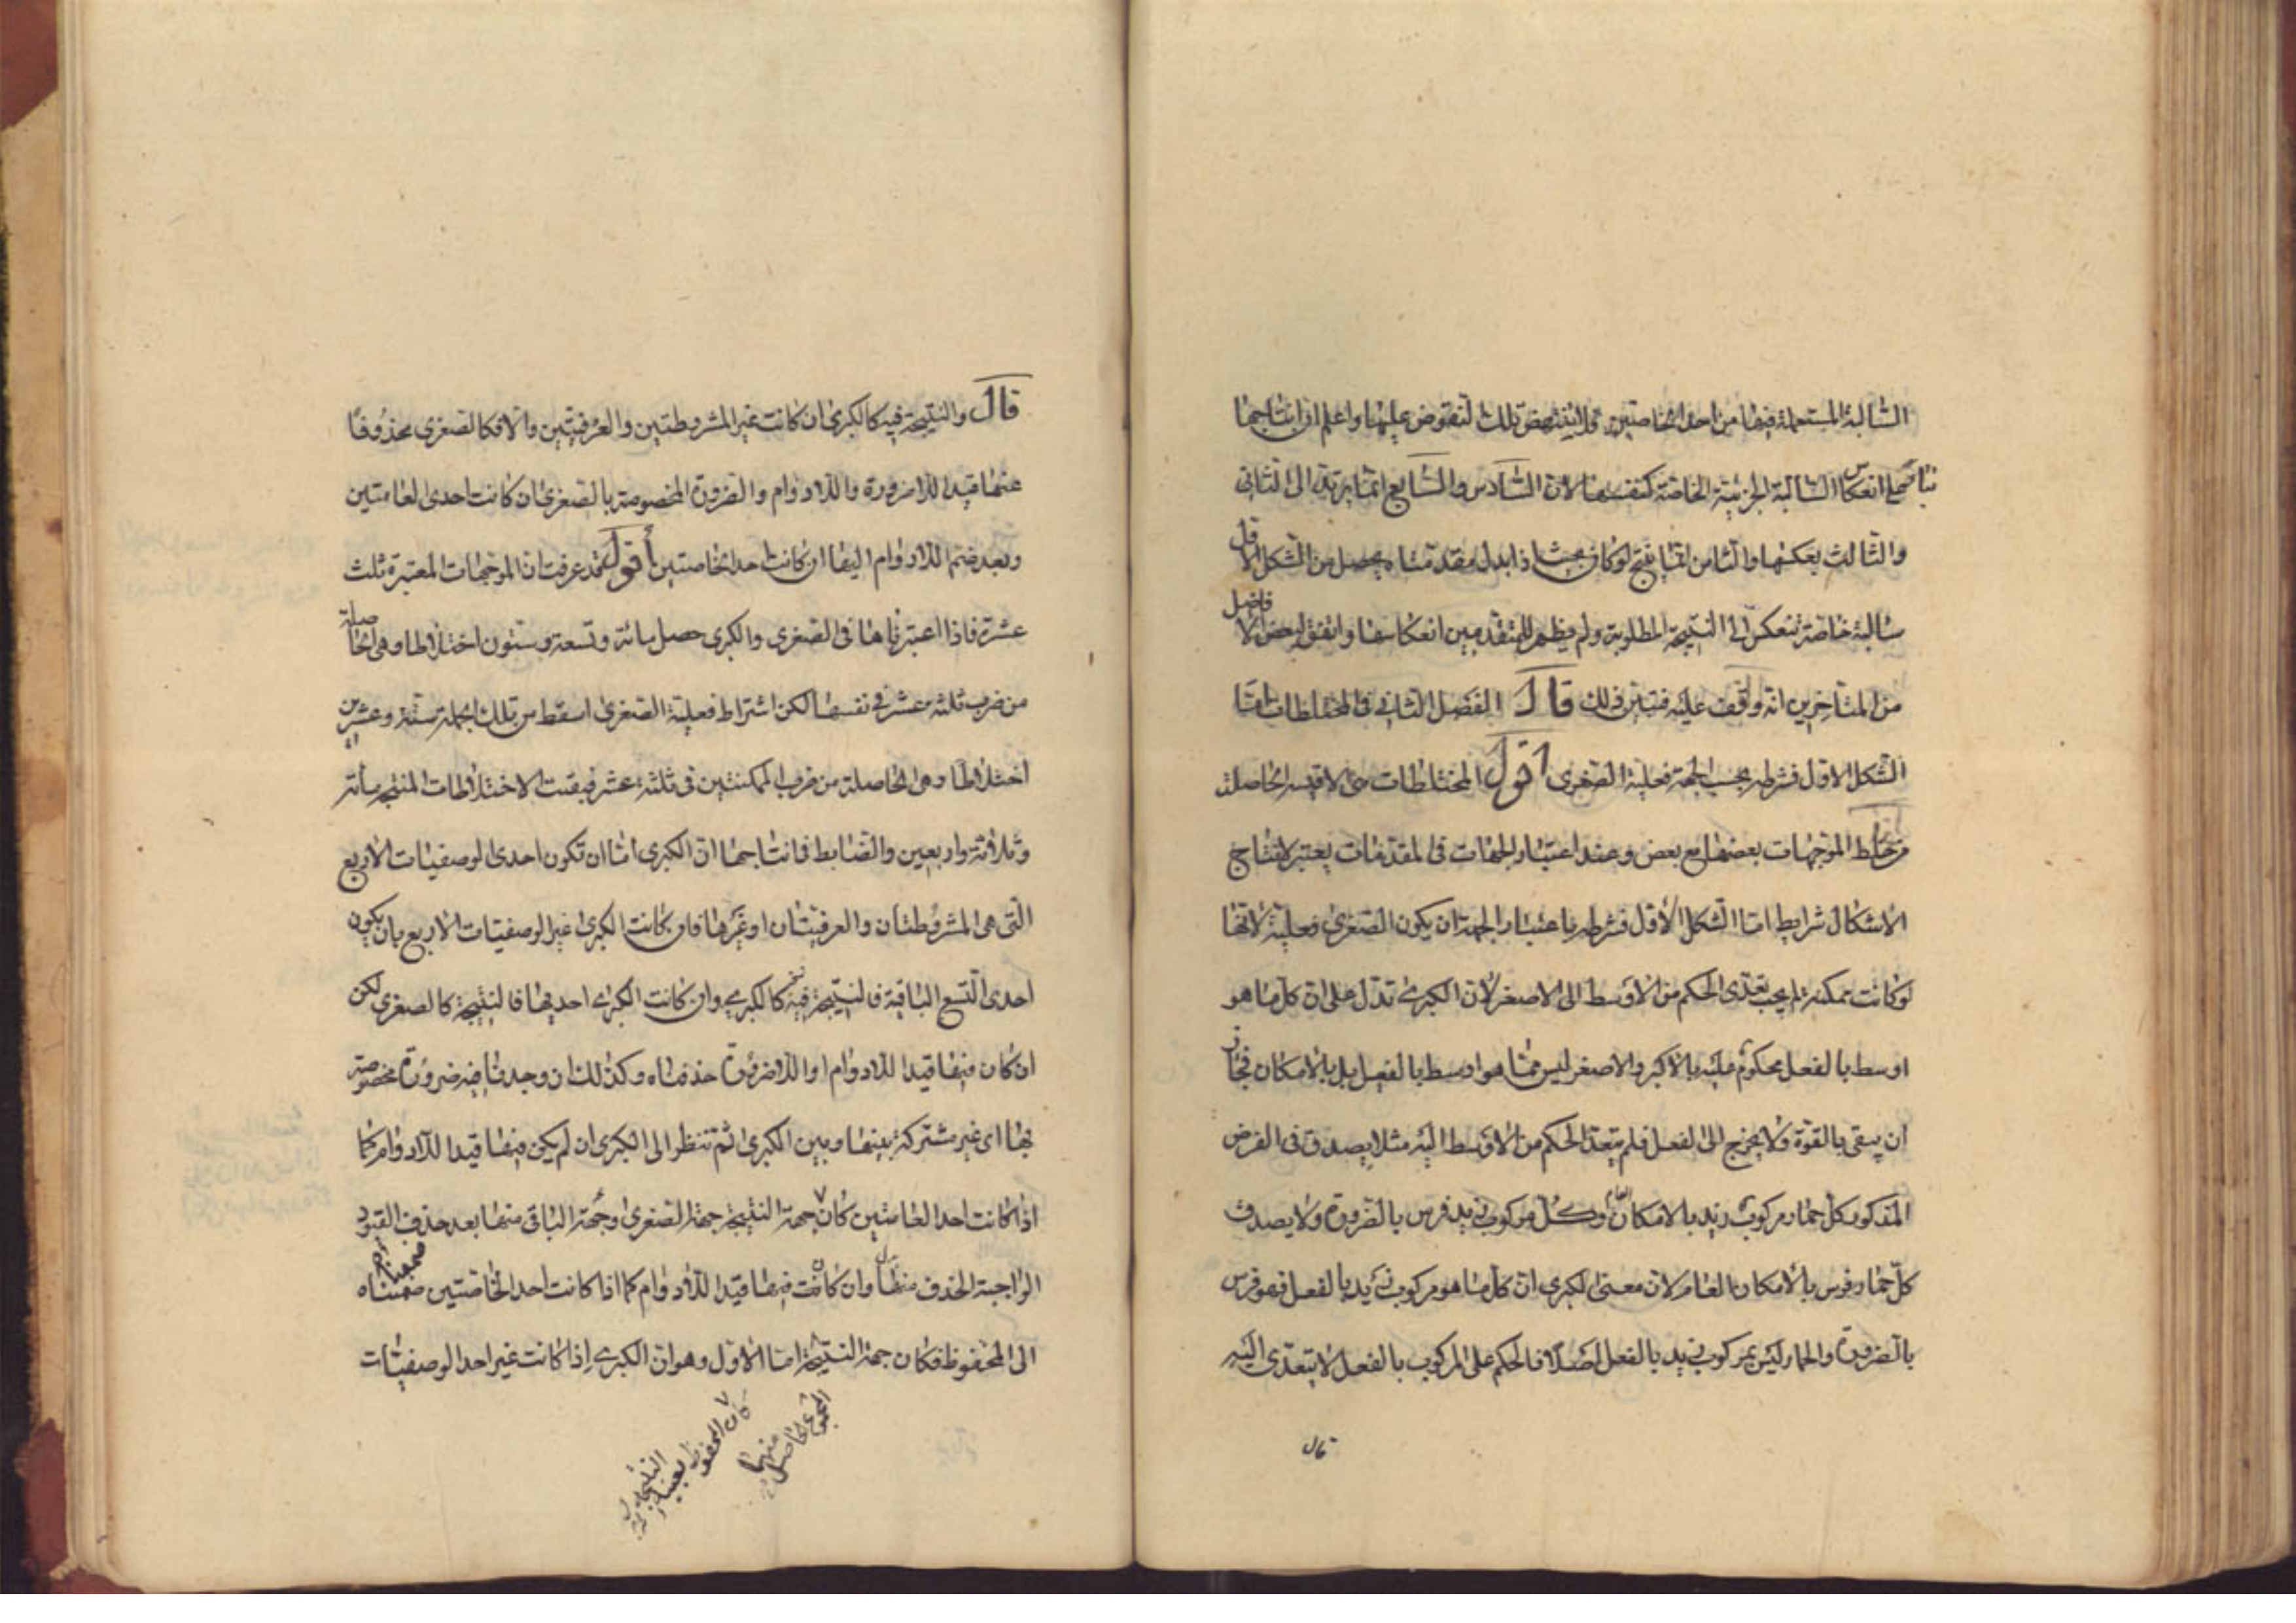 السالبة المستعملة فيها من احدى الخاصتين فلا ينتهض تلك النقوض عليها واعلم ان انتاجها
بناء على انعكاس السالبة الجزئية الخاصة كنفسها لان السادس والسابع انما يرتد الى الثاني
والثالث بعكسها والثامن انما ينتج لو كان بحيث اذا بدل مقدمتاه يحصل من الشكل الاول
سالبة خاصة تنعكس الى النتيجة المطلوبة ولم يظهر للمتقدمين انعكاسها واتفق لبعض الافاضل
من المتاخرين انه وقف عليه فتبين ذلك قال الفصل الثاني في المختلطات اما
الشكل الاول فشرطه بحسب الجهة فعلية الصغرى اقول المختلطات هى الاقيسة الحاصلة
من خلط الموجهات بعضها مع بعض وعند اعتبار الجهات فى المقدمات يعتبر لانتاج
الاشكال شرايط اما الشكل الأول فشرطه باعتبار الجهة ان يكون الصغرى فعلية لانها
لو كانت ممكنة لم يجب تعدى الحكم من الاوسط الى الاصغر لان الكبرى تدل على ان كل ما هو
اوسط بالفعل محكوم عليه بالاكبر والاصغر ليس مما هو اوسط بالفعل بل بالامكان فجاز
ان يبقى بالقوة ولا يخرج الى الفعل فلم يتعد الحكم من الاوسط اليه مثلا يصدق فى الفرض
المذكور كل حمار مركوب زيد بالامكان وكل مركوب زيد فرس بالضرورة ولا يصدق
كل حمار فرس بالامكان العام لان معنى الكبرى ان كل ما هو مركوب زيد بالفعل فهو فرس
بالضرورة والحمار ليس بمركوب زيد بالفعل اصلا فالحكم على المركوب بالفعل لا يتعدى اليه
قال
قال والنتيجة فيه كالكبرى ان كانت غير المشروطتين والعرفيتين والا فكالصغرى محذوفا
عنها قيد اللاضرورة واللادوام والضرورة المخصوصة بالصغرى ان كانت احدى العامتين
وبعد ضم اللادوام اليها ان كانت احدى الخاصتين أقول قد عرفت ان الموجهات المعتبرة ثلث
عشرة فاذا اعتبرناها فى الصغرى والكبرى حصل مائة وتسعة وستون اختلاطا وهى الحاصلة
من ضرب ثلثة عشر في نفسها لكن اشتراط فعلية الصغرى اسقط من تلك الجملة ستة وعشرين
اختلاطا وهى الحاصلة من ضرب الممكنتين فى ثلثة عشر فبقيت الاختلاطات المنتجة مائة
وثلاثة واربعين والضابط فى انتاجها ان الكبرى اما ان تكون احدى الوصفيات الاربع
التى هى المشروطتان والعرفيتان او غيرها فان كانت الكبرى غير الوصفيات الاربع بان يكون
احدى التسع الباقية فالنتيجة فيه كالكبرى وان كانت الكبرى احديها فالنتيجة كالصغرى لكن
ان كان فيها قيد اللادوام او اللاضرورة حذفناه وكذلك ان وجدنا فيه ضرورة مخصوصة
بها اى غير مشتركة بينها وبين الكبرى ثم تنظر الى الكبرى ان لم يكن فيها قيد اللادوام كما
اذا كانت احد العامتين كان جهة النتيجة جهة الصغرى وجهة الباقى منها بعد حذف القيود
الواجبة الحذف منها وان كانت فيها قيد اللادوام كما اذا كانت احد الخاصتين ضممناه
الى المحفوظ فكان جهة النتيجة اما الاول وهو ان الكبرى اذا كانت غير احد الوصفيات
كان المحفوظ بعينه
المجموع الحاصل
منهما